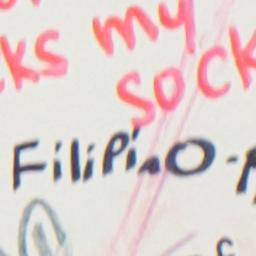 ks my
sock
FiliPinO-